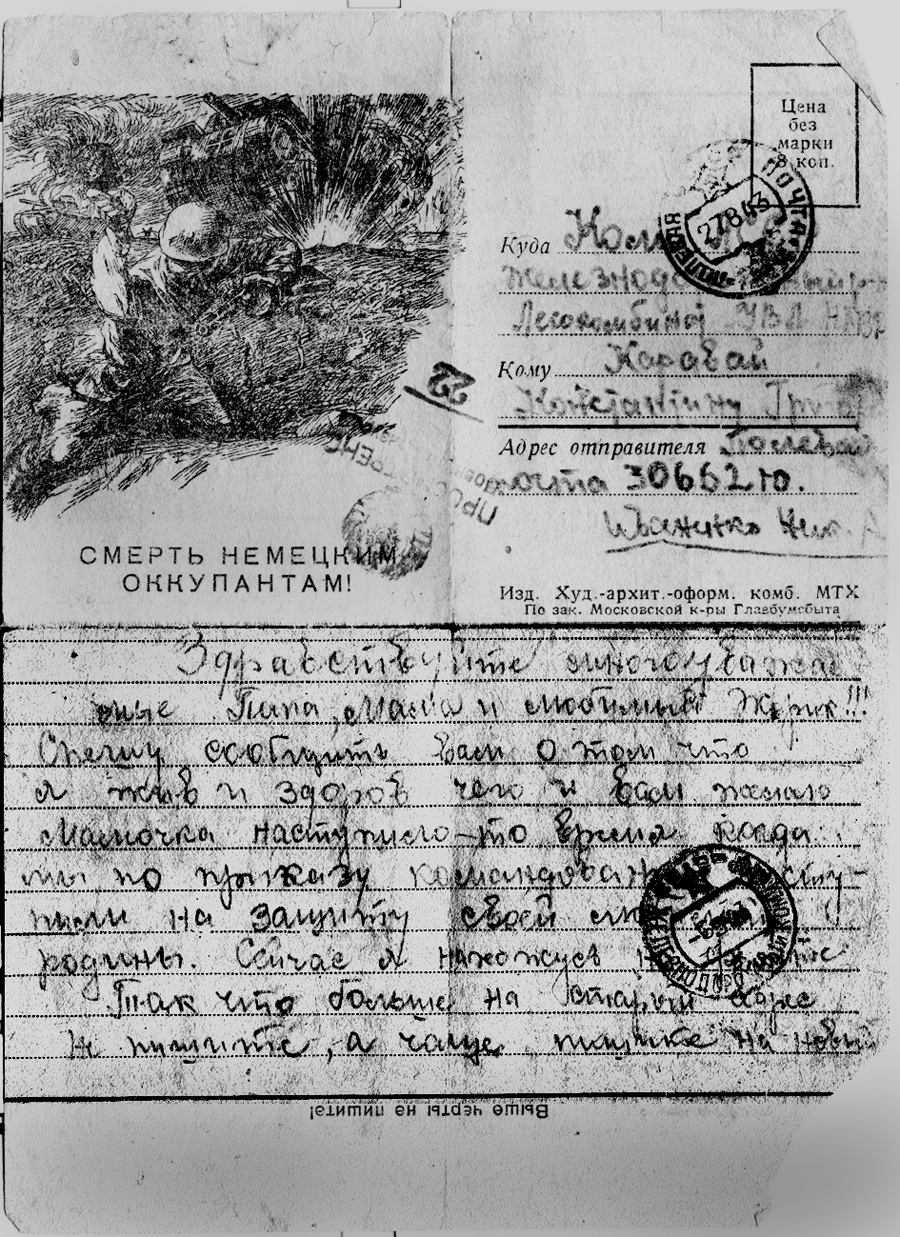 Цена
без
марки
8 коп.
ПОЧТА
27 8 43
Куда
Железнодо
Лесокомбинат
Кому Каравай
Константину
22
ПРОСМОТРЕНО
Адрес отправителя Полевая
почта 30662 Ю.
Иваненко Ник. А
СМЕРТЬ НЕМЕЦКИМ
ОККУПАНТАМ!
Изд. Худ.-архит.-оформ. комб. МТХ
По зак. Московской к-ры Главбумсбыта
Здравствуйте многоуважае
мые Папа, Мама и любимый !!!
Спешу сообщить вам о том что
я жив и здоров чего и вам желаю
Мамочка наступило-то время когда
мы по приказу командован сту-
пили на защиту своей
родины. Сейчас я нахожусь
Так что больше на старый адрес
Не пишите, а чаще пишите на новый
Выше черты не пишите!